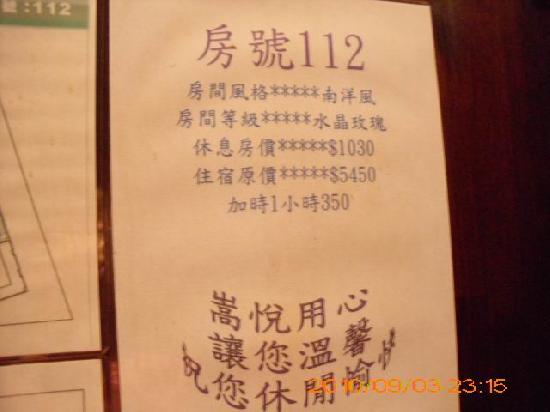 號:112
房號112
房間風格*****南洋風
房間等級*****水晶玫瑰
休息房價*****$1030
住宿原價*****$5450
加時1小時350
嵩悅用心
讓您溫馨
祝您休閒愉悅
2010/09/03 23:15